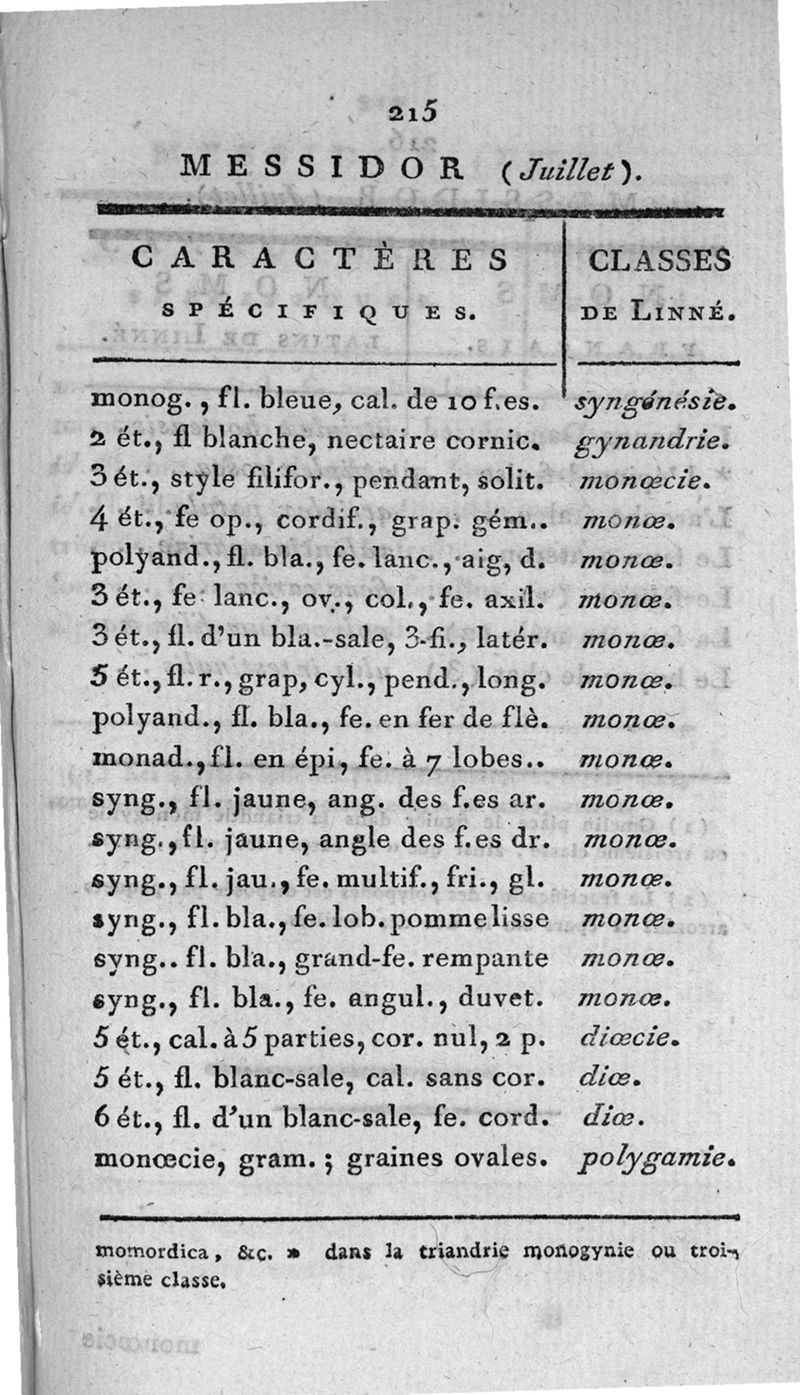 215
MESSIDOR (Juillet).
CARACTÈRES CLASSES
SPÉCIFIQUES. DE LINNÉ.
monog., fl. bleue, cal. de 10 f.es. syngénésie.
2 ét., fl blanche, nectaire cornic. gynandrie.
3 ét., style filifor., pendant, solit. monœcie.
4 ét., fe op., cordif., grap. gém.. monœ.
polyand., fl. bla., fe. lanc., aig, d. monœ.
3 ét., fe lanc., ov., col., fe. axil. monœ.
3 ét., fl. d'un bla.-sale, 3-fi., latér. monœ.
5 ét., fl. r., grap, cyl., pend., long. monœ.
polyand., fl. bla., fe. en fer de flè. monœ.
monad., fl. en épi, fe. à 7 lobes.. monœ.
syng., fl. jaune, ang. des f.es ar. monœ.
syng., fl. jaune, angle des f.es dr. monœ.
syng., fl. jau., fe. multif., fri., gl. monœ.
syng., fl. bla., fe. lob. pomme lisse monœ.
syng.. fl. bla., grand-fe. rempante monœ.
syng., fl. bla., fe. angul., duvet. monœ.
5 ét., cal. à 5 parties, cor. nul, 2 p. diœcie.
5 ét., fl. blanc-sale, cal. sans cor. diœ.
6 ét., fl. d'un blanc-sale, fe. cord. diœ.
monœcie, gram. ; graines ovales. polygamie.
momordica, &c. » dans la triandrie monogynie ou troi-
sième classe.